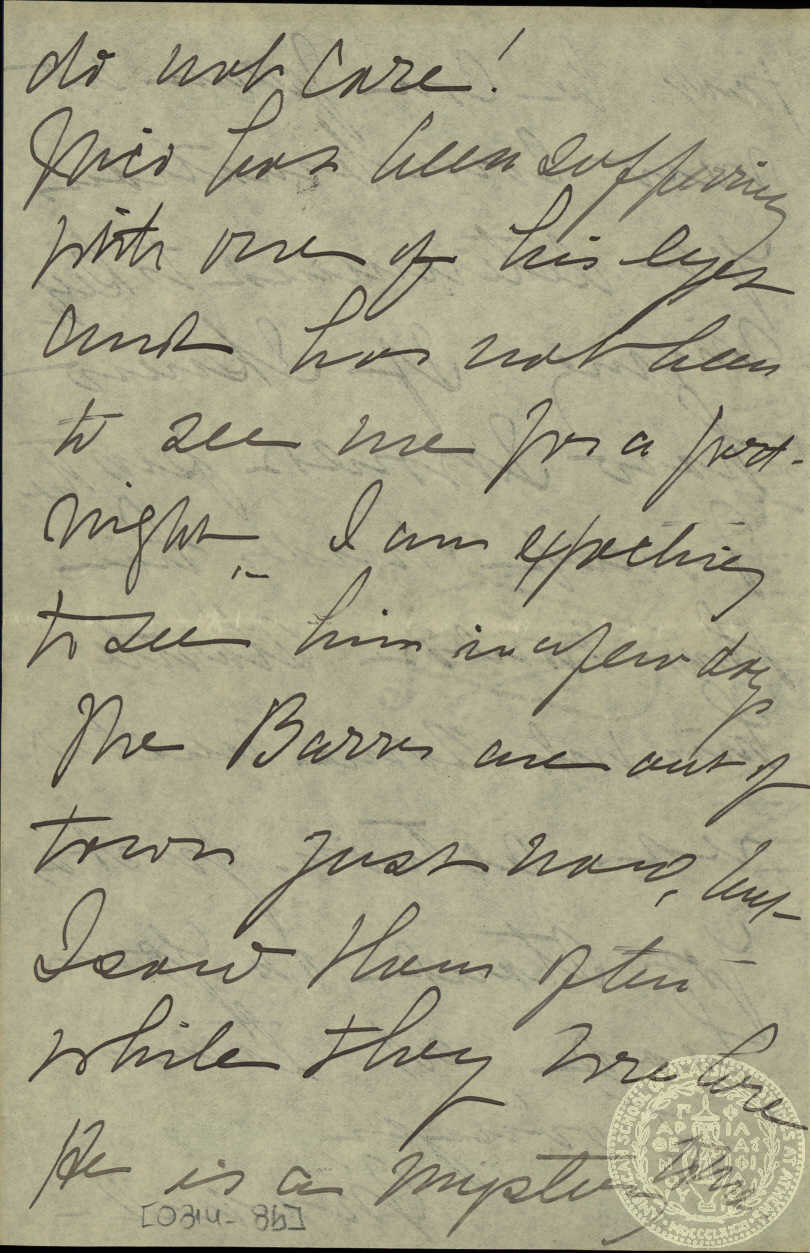 do not care!
Mico has been suffering
with one of his eyes
and has not been
to see me for a fort-
night.— I am expecting
to see him in a few days
The Barrs are out of
town just now, but
I saw them often
while they were here
He is a mystery
[0314-8b]